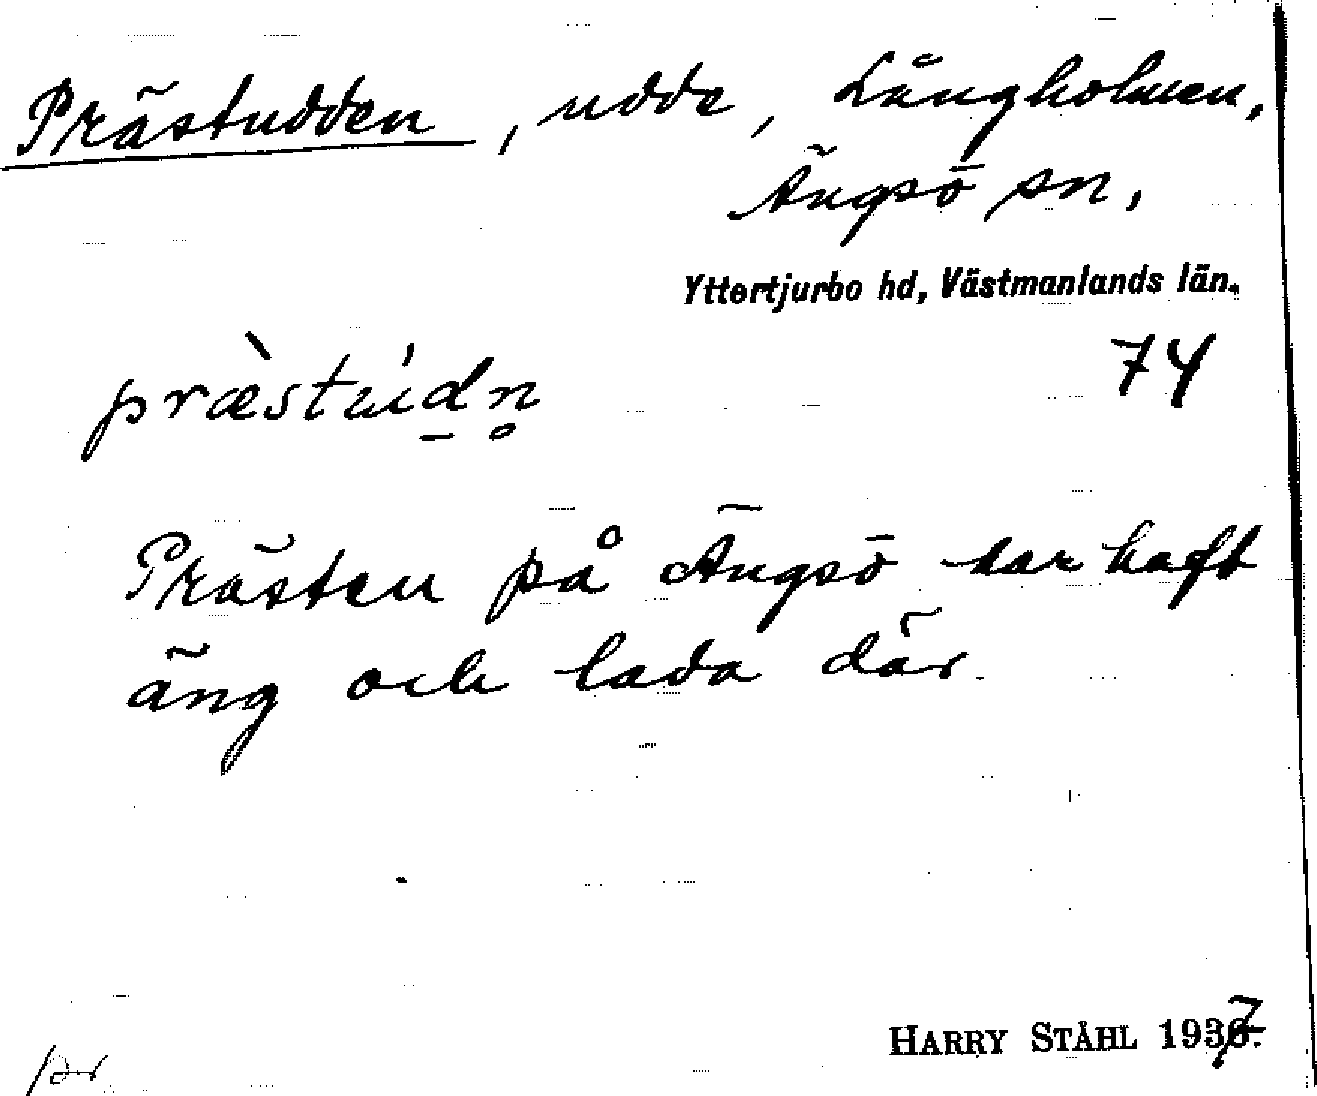 Prästudden, udde, Långholmen,
Ängsö sn,
Yttertjurbo hd, Västmanlands län.
74
Prästen på Ängsö har haft
äng och lada där
HARRY STÅHL 1937